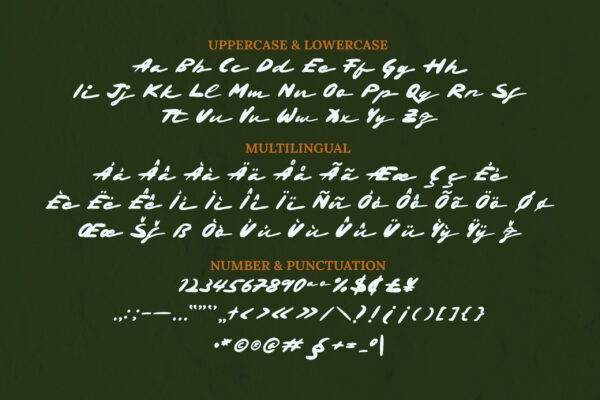 UPPERCASE & LOWERCASE
Aa Bb Cc Dd Ee Ff Gg Hh
Ii Jj Kk Ll Mm Nn Oo Pp Qq Rr Ss
Tt Uu Vv Ww Xx Yy Zz
MULTILINGUAL
Áá Ââ Àà Ää Åå Ãã Ææ Çç Éé
Èè Ëë Êê Íí Ìì Îî Ïï Ññ Óó Ôô Õõ Öö Øø
Œœ Šš ß Òò Úú Ùù Ûû Üü Ỳỳ Ÿÿ ž
NUMBER & PUNCTUATION
1234567890 % $ ¢ £ ¥
.,:;-—...“”‘’„ + < > « » / \ ? ! ¿ ¡ ( ) [ ] { }
•*©®@# § + = _ º |